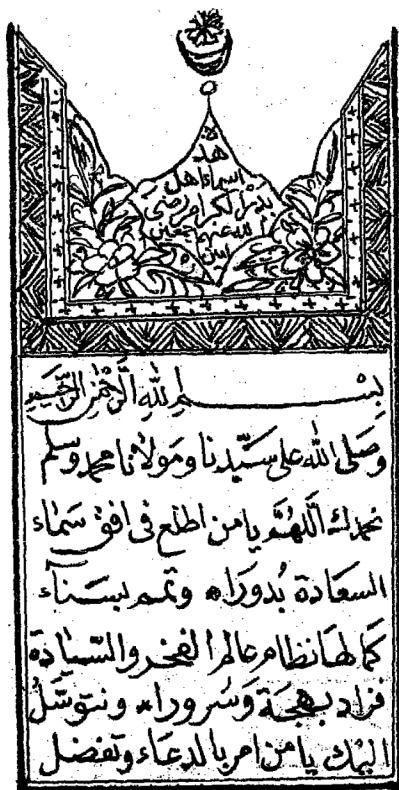 هذه
اسماء اهل
بدر الكرام رضي
الله عنهم اجمعين
امين
بِسْمِ اللهِ الرَّحْمٰنِ الرَّحِيمِ
وصلى الله على سيّدنا ومولانا محمد وسلم
نحمدك اللهمّ يا من اطلع فى افق سماء
السعادة بُدورًا وتمم بسناء
كمالها نظام عالم الفخر والسّيادة
فزاد بهجة وسرورا ونتوسّلُ
اليك يا من امر بالدعاء وتفضل